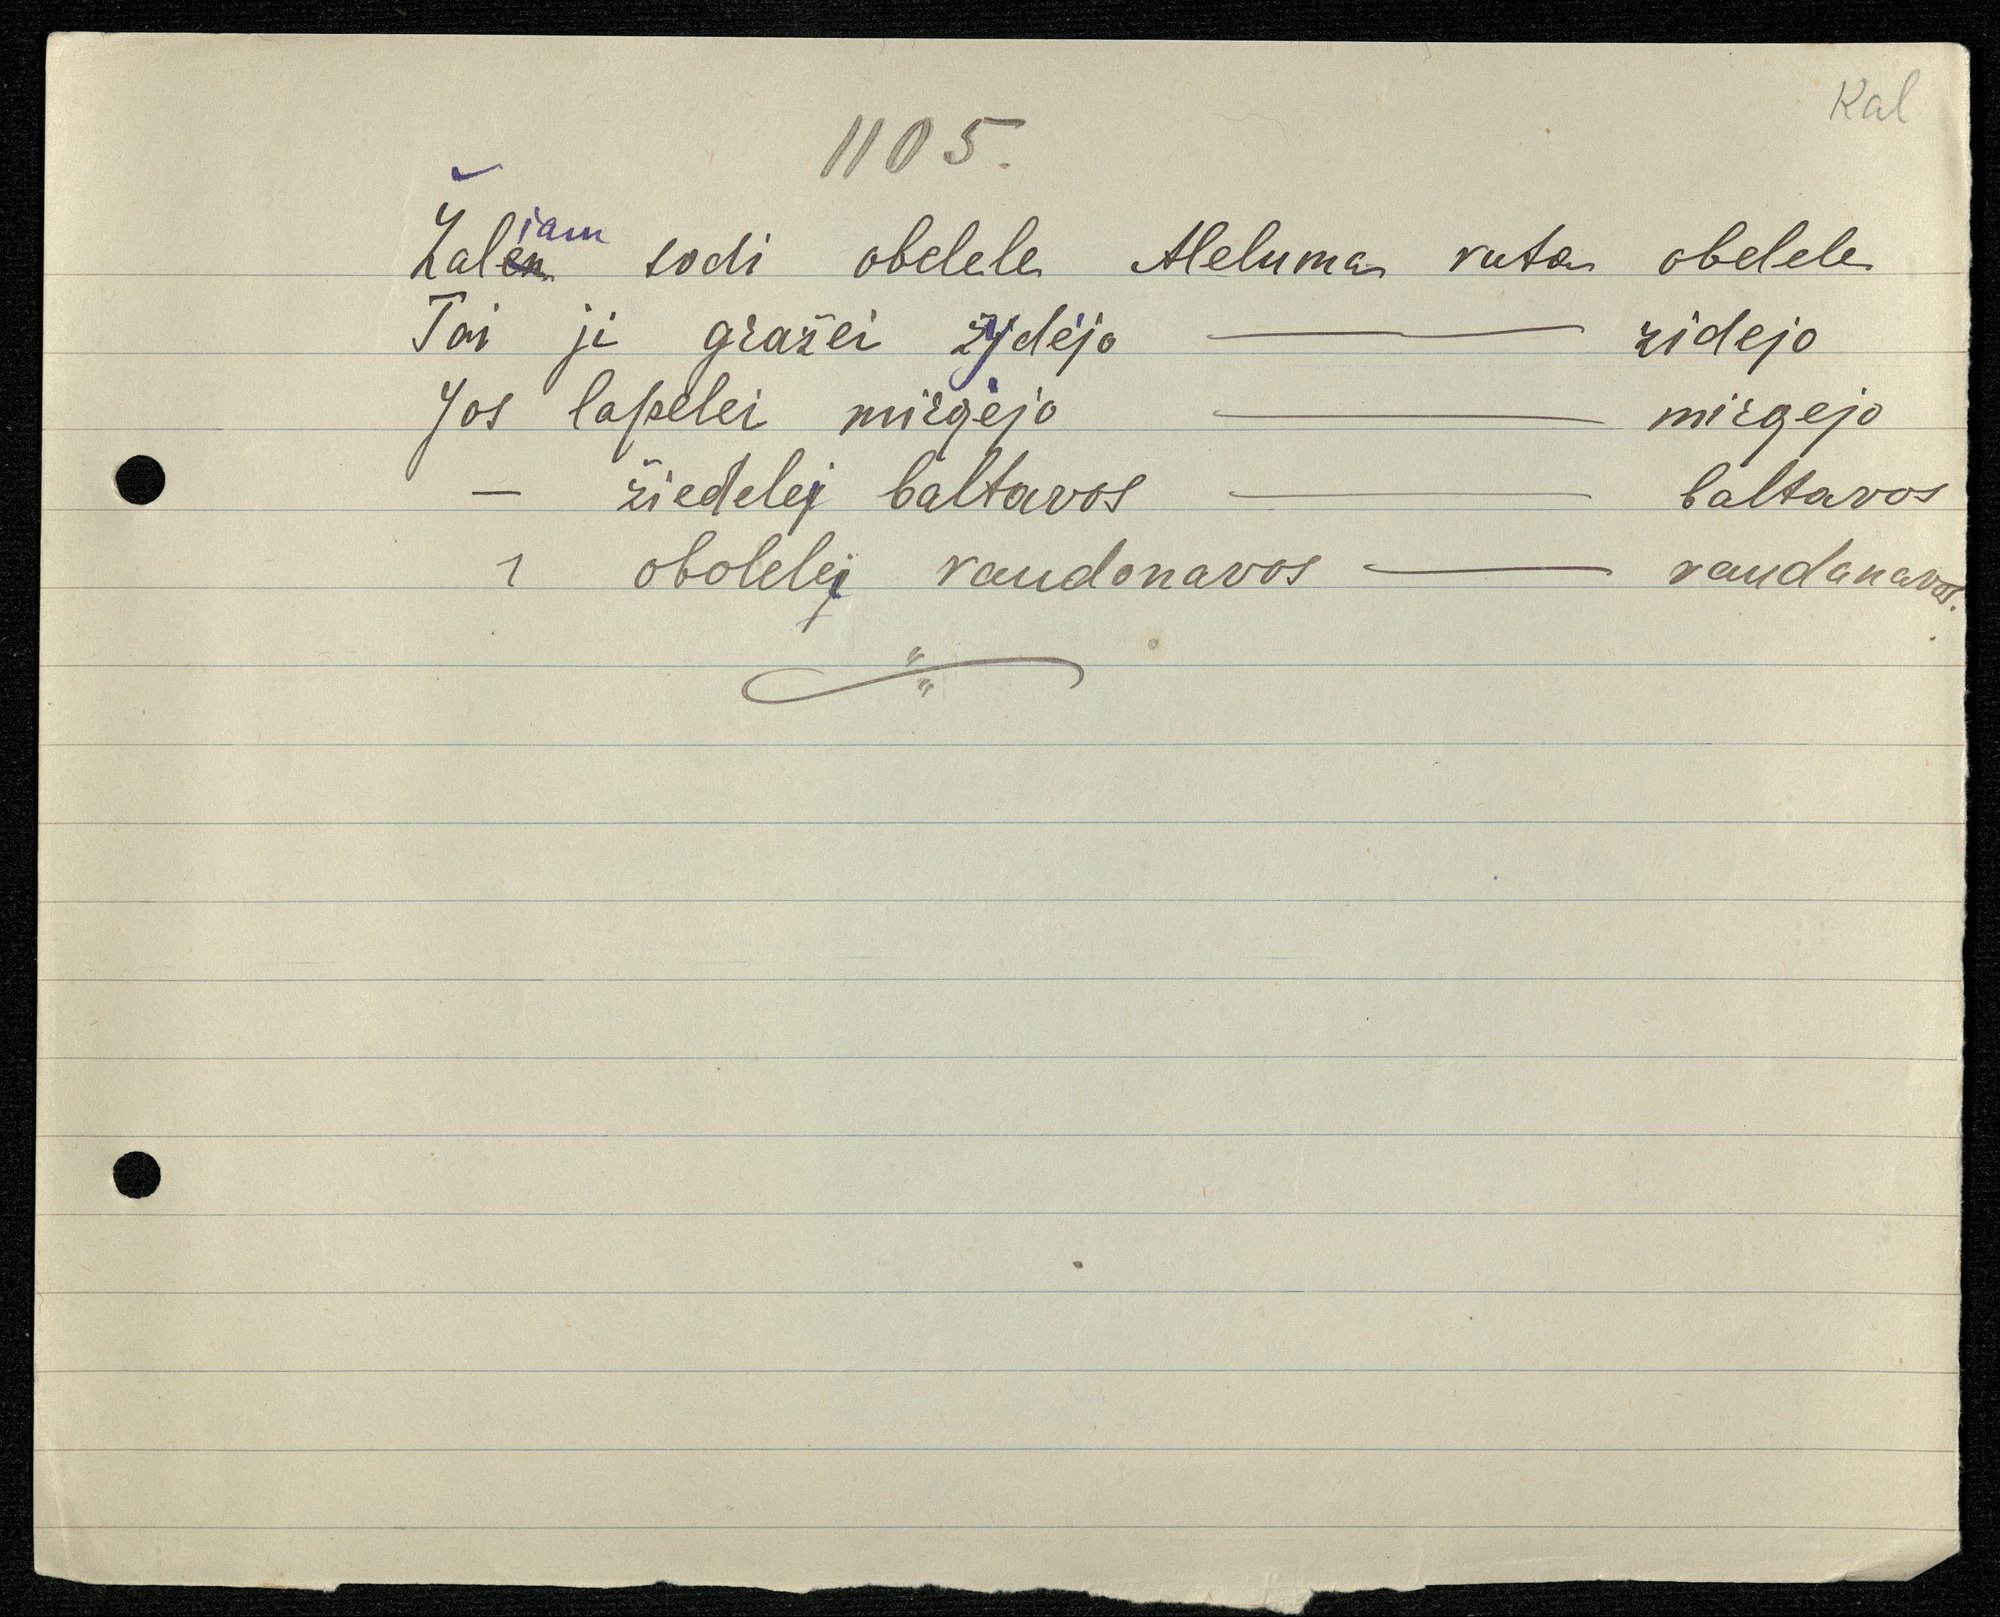 Kal
1105.
Žaliam sodi obelele Aleluma ruta obelele
Tai ji gražei žydėjo ——— zidejo
Jos lapelei mirgėjo ——— mirgejo
— žiedelei baltavos ——— baltavos
1 obolelei raudonavos ——— raudanavos.